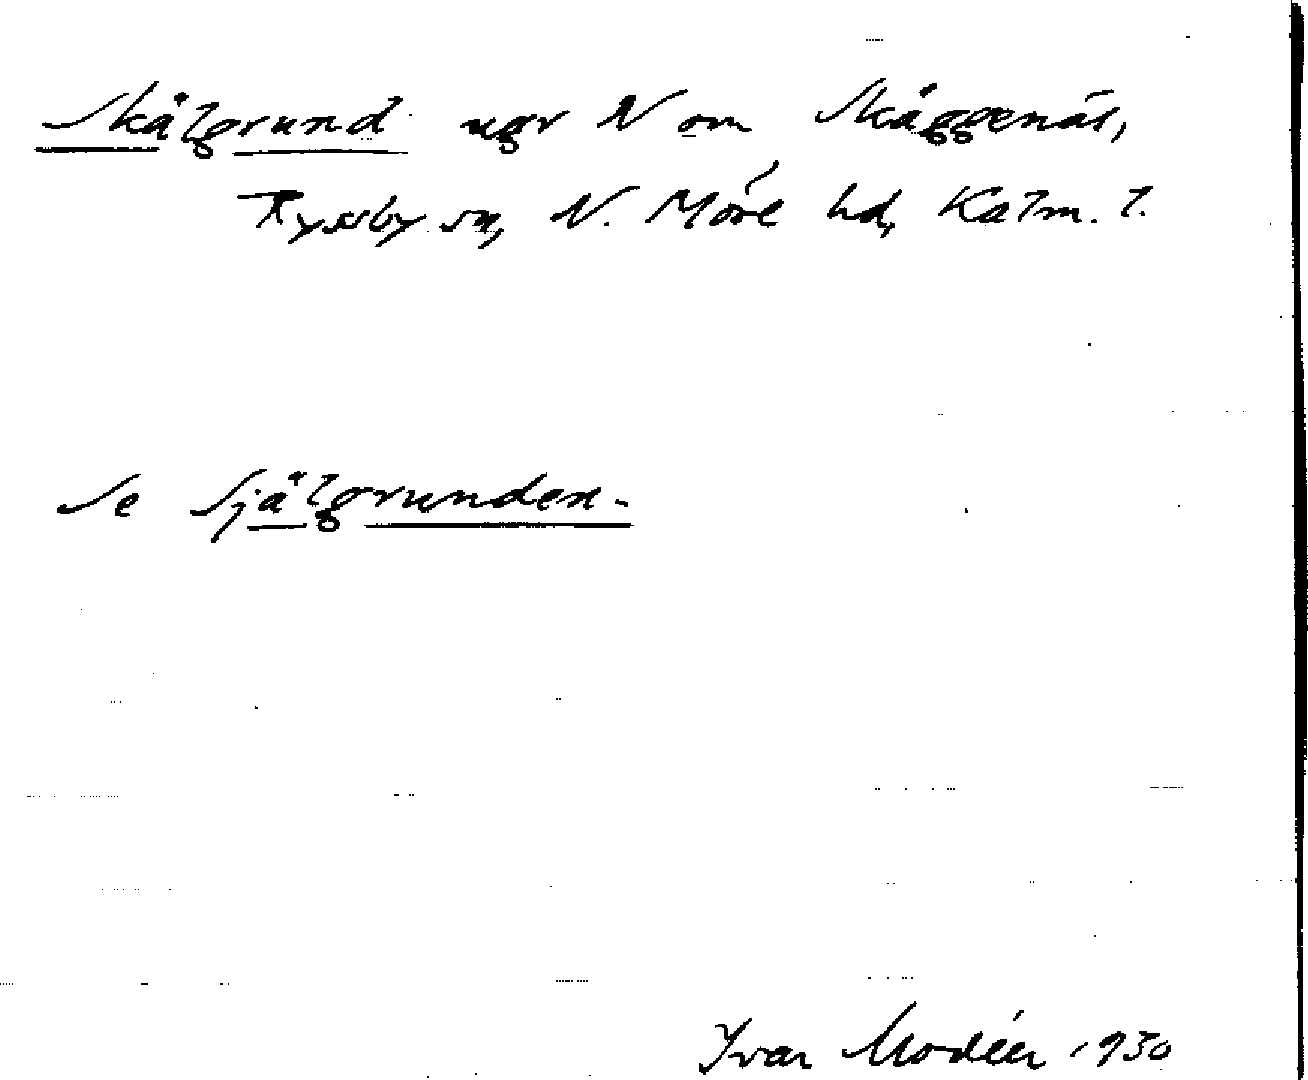 Skälgrund ugr N om Skäggenäs,
Ryssby sn, N. Möre hd, Kalm. l.
Se Själgrunden.
Ivar Modéer 1930